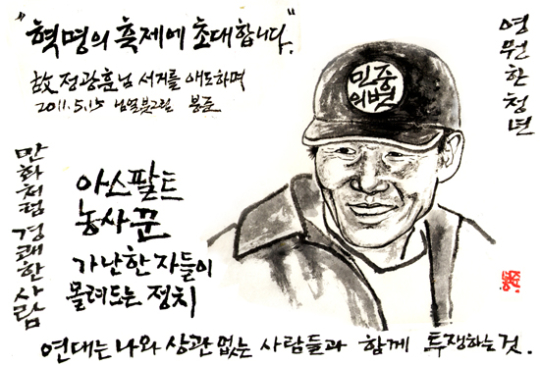 "혁명의 흑제에 초대합니다."
故 정광훈님 서거를 애도하며
2011.5.15
영원한청년
민중의벗
만화처럼 경쾌한 사람
아스팔트
농사꾼
가난한 자들이
몰려드는 정치
연대는 나와 상관 없는 사람들과 함께 투쟁하는 것.